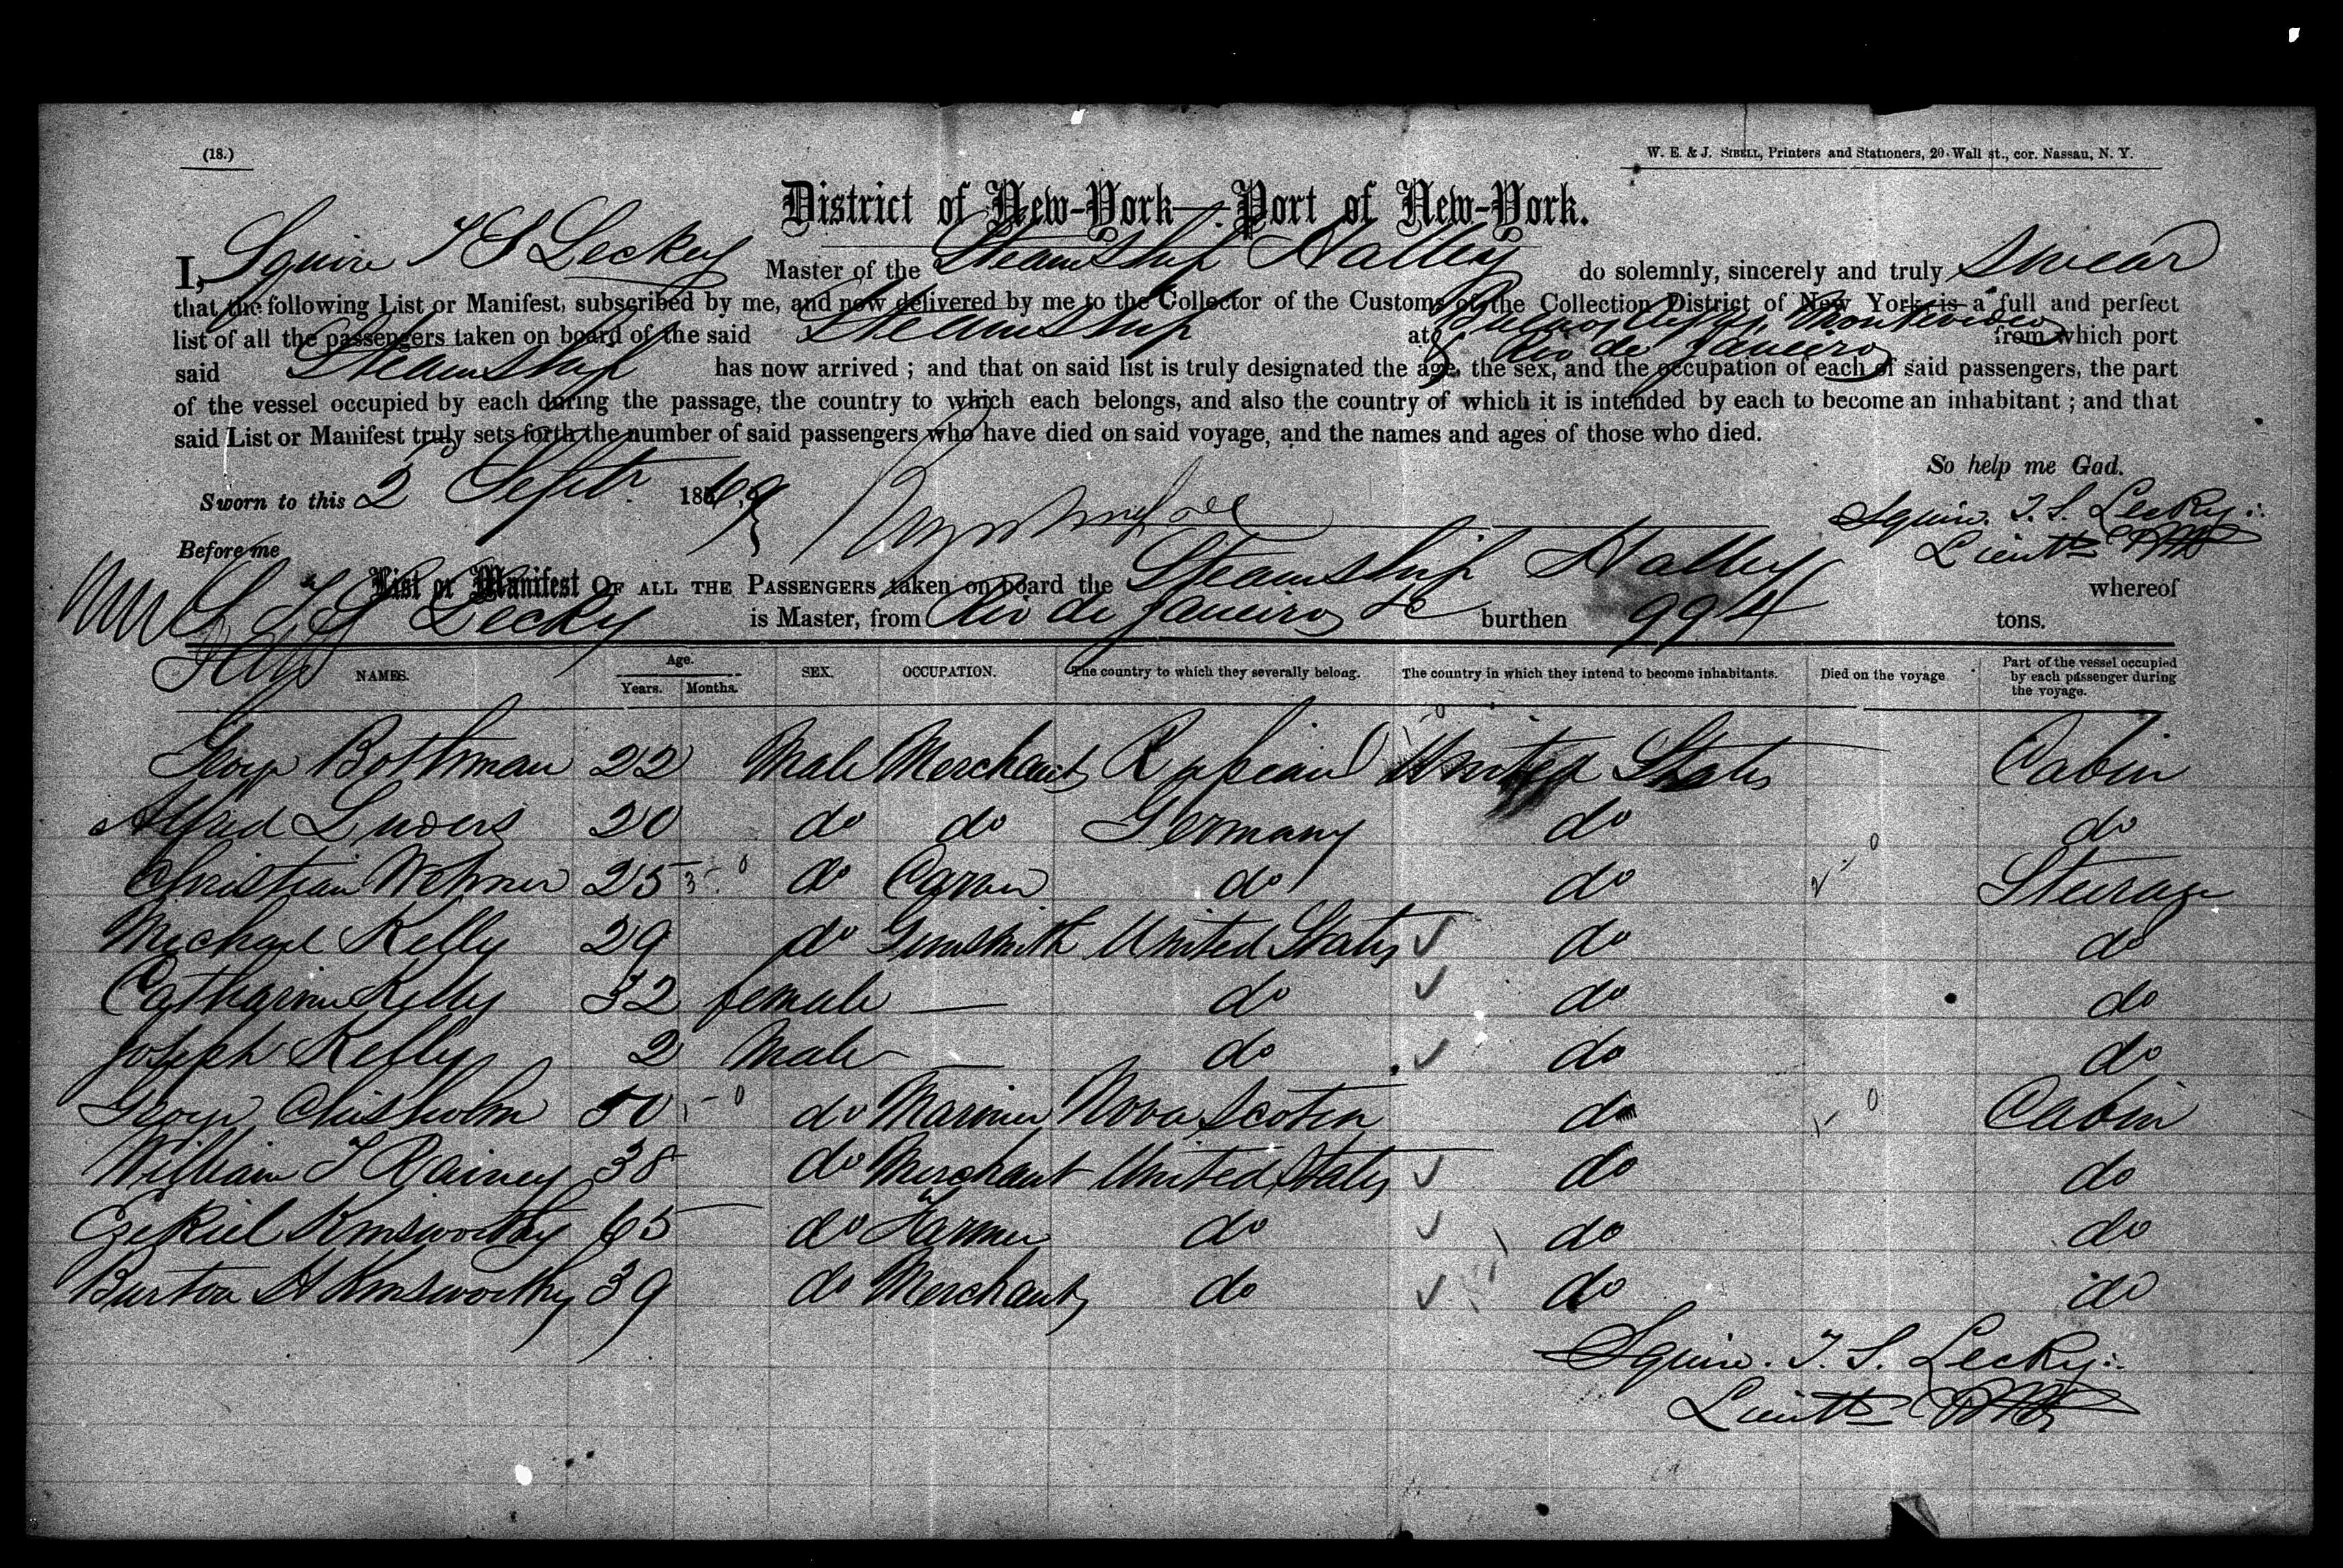 (18.)
W. E. & J. SIBELL, Printers and Stationers, 20 Wall st., cor. Nassau, N. Y.
District of New-York—Port of New-York.
I, Squire T S Leckey Master of the Steamship Halley do solemnly, sincerely and truly swear
that the following List or Manifest, subscribed by me, and now delivered by me to the Collector of the Customs of the Collection District of New York, is a full and perfect
list of all the passengers taken on board of the said Steamship at Buenos Ayres, Montevideo from which port
& Rio de Janeiro
said Steamship has now arrived ; and that on said list is truly designated the age, the sex, and the occupation of each of said passengers, the part
of the vessel occupied by each during the passage, the country to which each belongs, and also the country of which it is intended by each to become an inhabitant ; and that
said List or Manifest truly sets forth the number of said passengers who have died on said voyage, and the names and ages of those who died.
So help me God.
Sworn to this 2 Septr 1869
Squire. T. S. Lecky
Before me
Lieutt
List or Manifest OF ALL THE PASSENGERS taken on board the Steamship Halley whereof
S T S Lecky is Master, from Rio de Janeiro &c burthen 994 tons.
NAMES. Age. Years. Months. SEX. OCCUPATION. The country to which they severally belong. The country in which they intend to become inhabitants. Died on the voyage Part of the vessel occupied by each passenger during the voyage.
George Bothman 22 Male Merchant United States Cabin
Alfred Luders 20 do do Germany do do
Christian Wehner 25 do do do Steerage
Michael Kelly 29 do Gunsmith United States do do
Catharine Kelly 32 female — do do do
Joseph Kelly 2 Male — do do do
George Chisholm 50 do Mariner Nova Scotia do Cabin
William T Rainey 38 do Merchant United States do do
Ezekiel Kmsworthy 65 do Farmer do do do
Burton H Kmsworthy 39 do Merchant do do do
Squire. T. S. Lecky
Lieutt